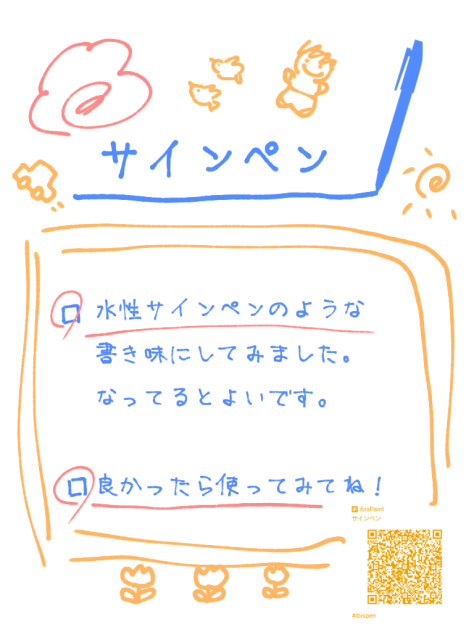 サインペン
水性サインペンのような
書き味にしてみました。
なってるとよいです。
良かったら使ってみてね！
ibisPaint
サインペン
#ibispen